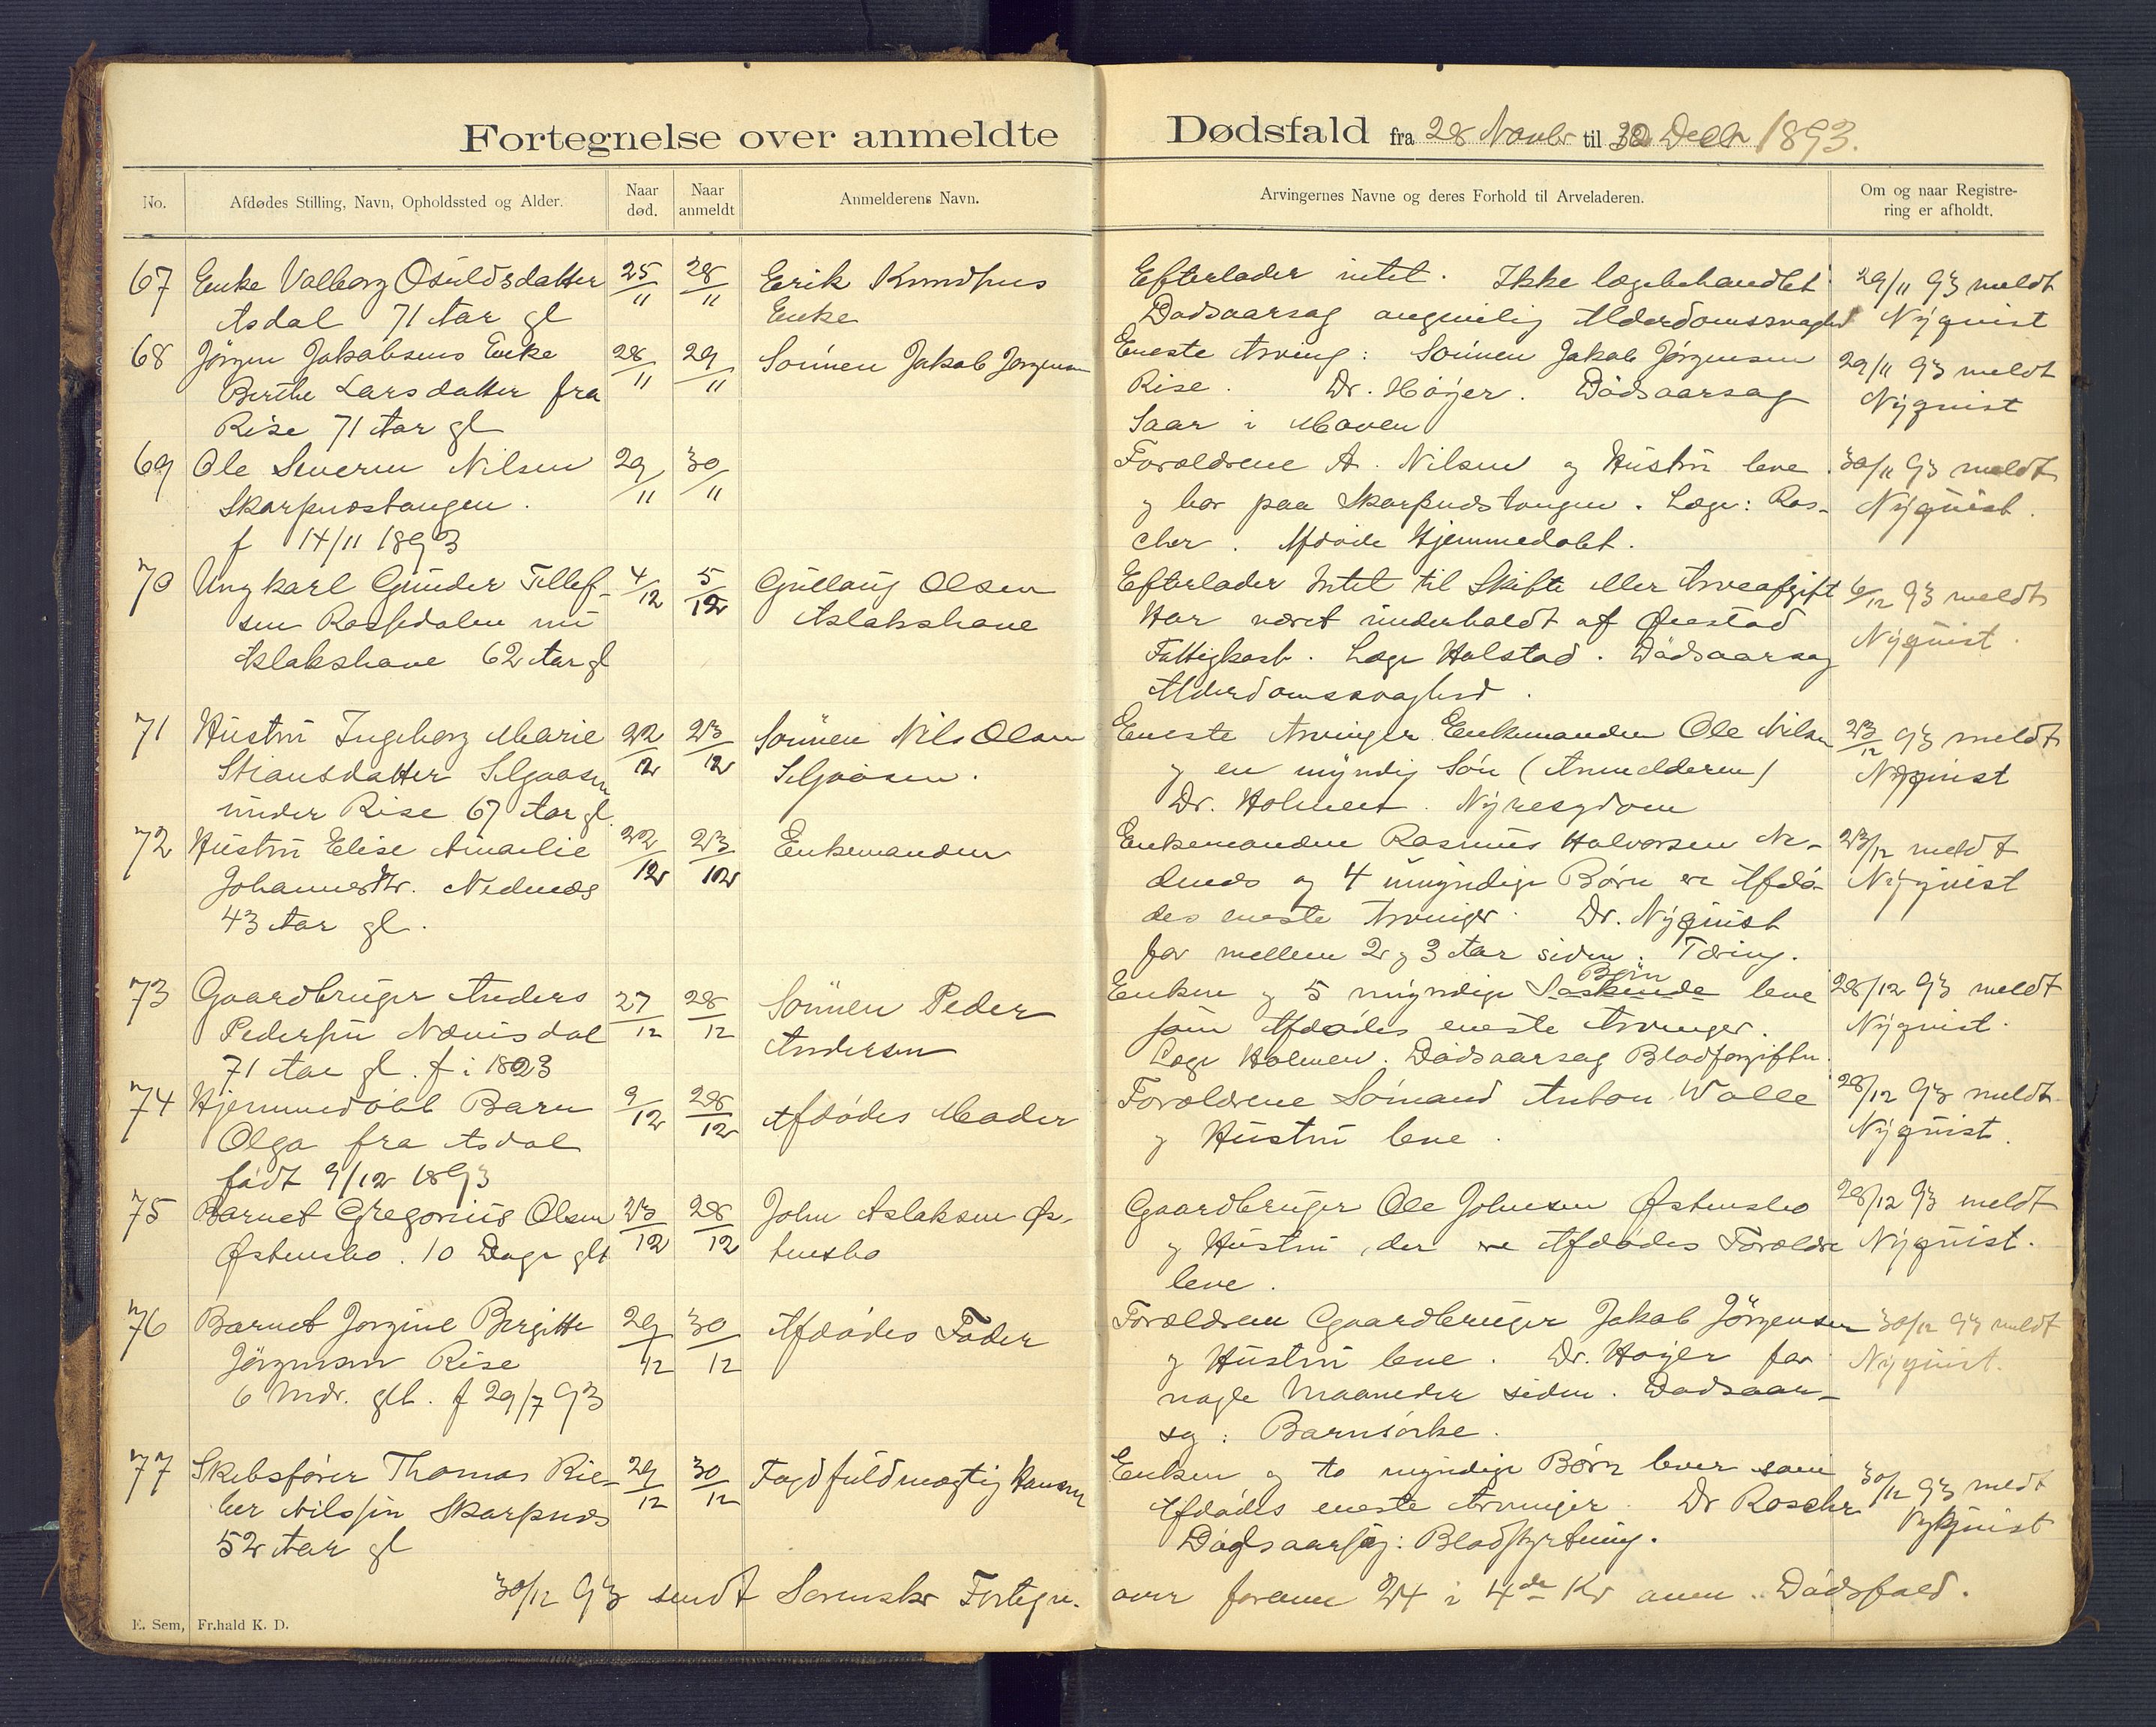 Fortegnelse over anmeldte Dødsfald fra 28 Novbr til 30 Decbr 1893.
No. Afdødes Stilling, Navn, Opholdssted og Alder. Naar død. Naar anmeldt Anmelderens Navn. Arvingernes Navne og deres Forhold til Arveladeren. Om og naar Registrering er afholdt.
67 Enke Valborg Osuldsdatter 25/11 28/11 Erik Knudsens Efterlader intet. Ikke lægebehandlet 29/11 93 meldt
Asdal 71 Aar gl Enke Dødsaarsag angivelig Alderdomssvaghed Nyquist
68 Jörgen Jakobsens Enke 28/11 29/11 Sönnen Jakob Jörgensen Eneste Arving: Sönnen Jakob Jörgensen 29/11 93 meldt
Berthe Larsdatter fra Rise. Dr. Höyer. Dödsaarsag Nyquist
Rise 71 Aar gl Saar i Maven
69 Ole Severin Nilsen 29/11 30/11 Forældrene A. Nilsen og Hustru leve 30/11 93 meldt
Skarpnæstangen. og bor paa Skarpnæstangen. Læge: Ros- Nyquist.
f 14/11 1893 cher. Afdöde Hjemmedöbt.
70 Ungkarl Gunder Tellef- 4/12 5/12 Gullaug Olsen Efterlader Intet til Skifte eller Arveafgift 6/12 93 meldt
sen Rossedalen nu Aslakshave Har været underholdt af Øiestad Nyquist.
Aslakshave 62 Aar gl Fattigkasse. Læge Holstad. Dödsaarsag
Alderdomssvaghed.
71 Hustru Ingeborg Marie 22/12 23/12 Sönnen Nils Olsen Eneste Arvinger Enkemanden Ole Nilsen 23/12 93 meldt
Stiansdatter Selgaasen Selgaasen. og en myndig Sön (Anmelderen) Nyquist
under Rise 67 Aar gl. Dr. Holmen. Nyresygdom
72 Hustru Elise Amalie 22/12 23/12 Enkemanden Enkemanden Rasmus Halvorsen Ne- 23/12 meldt
Johannesdtr. Nedenæs denæs og 4 umyndige Børn ere Afdö- Nyquist
43 Aar gl. des eneste Arvinger. Dr. Nyquist
for mellem 2 og 3 Aar siden. Tæring.
73 Gaardbruger Anders 27/12 28/12 Sönnen Peder Enken og 5 myndige Søskende Børn leve 28/12 93 meldt
Pedersen Nævisdal Andersen som Afdødes eneste Arvinger. Nyquist.
71 Aar gl. f i 1823 Læge Holmen. Dödsaarsag Blodforgiftn.
74 Hjemmedöbt Barn 9/12 28/12 Afdödes Moder Forældrene Sömand Anton Wolle 28/12 93 meldt.
Olga fra Asdal og Hustru leve. Nyquist.
födt 9/12 1893
75 Barnet Gregorius Olsen 23/12 28/12 John Aslaksen Øs- Gaardbruger Ole Johnsen Østensbo 28/12 93 meldt
Østensbo. 10 Dage glt tensbo og Hustru, der ere Afdødes Forældre Nyquist.
leve.
76 Barnet Jorgine Bergitte 29/12 30/12 Afdødes Fader Forældrene Gaardbruger Jakob Jörgensen 30/12 93 meldt
Jörgensen Rise og Hustru leve. Dr. Höyer for Nyquist.
6 Mdr. glt. f 29/7 93 nogle Maaneder siden. Dødsaar-
sag: Barnsörke.
77 Skibsförer Thomas Rie- 29/12 30/12 Fogdfuldmægtig Hansen Enken og to myndige Børn lever som 30/12 93 meldt
ber Nilssen Skarpnæs Afdødes eneste Arvinger. Dr Roscher Nyquist
52 Aar gl Dødsaarsag: Blodstyrtning.
30/12 93 sendt Sorenskr Fortegn. over foran 24 i 4de Kv anm. Dødsfald.
E. Sem, Fr.hald K. D.